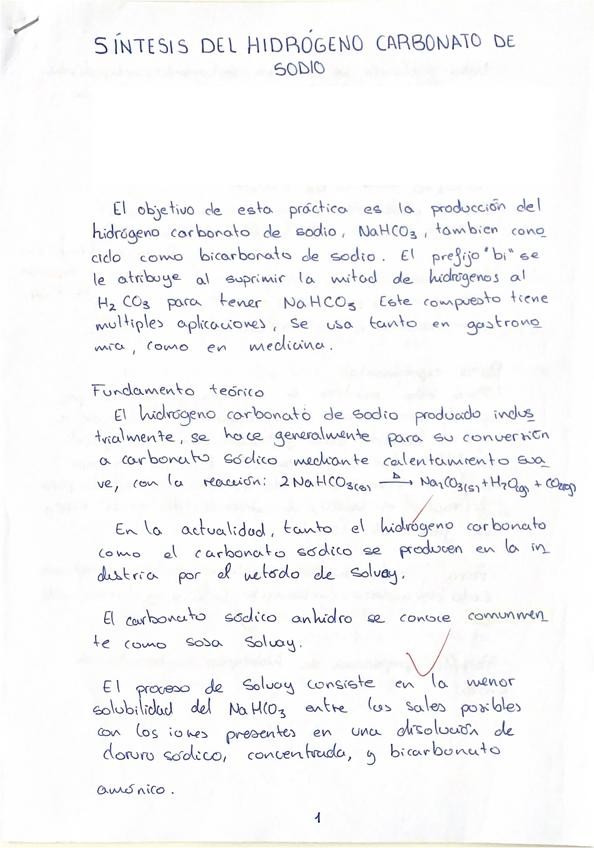 SÍNTESIS DEL HIDRÓGENO CARBONATO DE
SODIO
El objetivo de esta práctica es la producción del
hidrógeno carbonato de sodio, NaHCO₃, tambien cono
cido como bicarbonato de sodio. El prefijo "bi" se
le atribuye al suprimir la mitad de hidrógenos al
H₂CO₃ para tener NaHCO₃ Este compuesto tiene
multiples aplicaciones, se usa tanto en gastrono
mía, como en medicina.
Fundamento teórico
El hidrógeno carbonato de sodio producido indus
trialmente, se hace generalmente para su conversión
a carbonato sódico mediante calentamiento sua
ve, con la reacción: 2NaHCO₃(s) —Δ→ Na₂CO₃(s) + H₂O(g) + CO₂(g)
En la actualidad, tanto el hidrógeno carbonato
como el carbonato sódico se producen en la in
dustria por el método de Solvay.
El carbonato sódico anhidro se conoce comunmen
te como sosa Solvay.
El proceso de Solvay consiste en la menor
solubilidad del NaHCO₃ entre las sales posibles
con los iones presentes en una disolución de
cloruro sódico, concentrada, y bicarbonato
amónico.
1